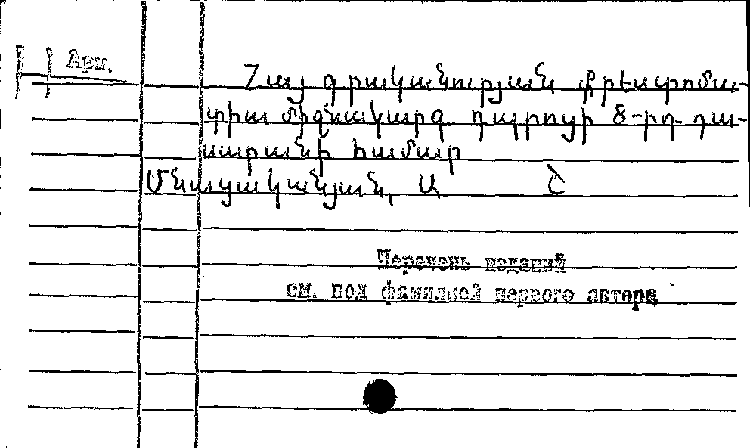 Арм.
Հայ գրականության քրեստոմա-
տիա միջնակարգ դպրոցի 8-րդ դա-
սարանի համար
Մնացականյան, Ա Շ
Перечень изданий
см. под фамилией первого автора